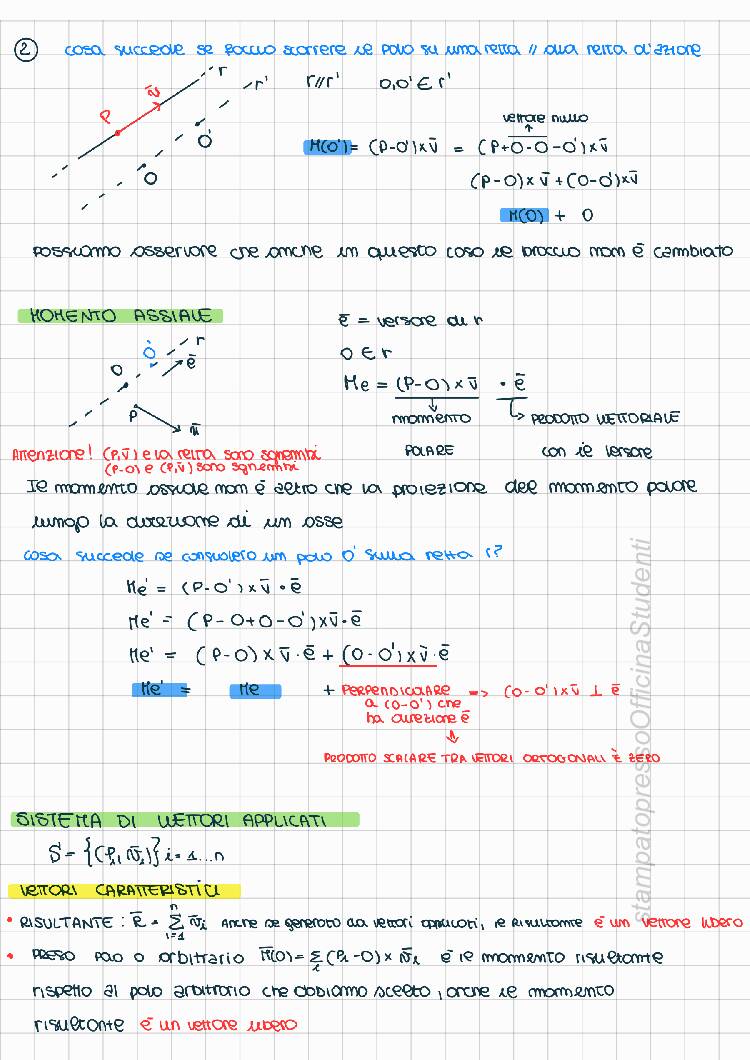 ② cosa succede se faccio scorrere il polo su una retta // alla retta d'azione
r
r'
v̄
P
O'
O
r // r'    O,O' ∈ r'
vettore nullo
M(O') = (P-O') × v̄ = (P+O-O-O') × v̄
(P-O) × v̄ + (O-O') × v̄
M(O) + 0
possiamo osservare che anche in questo caso il braccio non è cambiato
MOMENTO ASSIALE
ē = versore di r
O ∈ r
Me = (P-O) × v̄ · ē
momento POLARE
PRODOTTO VETTORIALE con il versore
O
O'
r
ē
P
v̄
Attenzione! (P,v̄) e la retta sono sghembi
(P-O) e (P,v̄) sono sghembi
Il momento assiale non è altro che la proiezione del momento polare
lungo la direzione di un asse
cosa succede se considero un polo O' sulla retta r?
Me' = (P-O') × v̄ · ē
Me' = (P-O+O-O') × v̄ · ē
Me' = (P-O) × v̄ · ē + (O-O') × v̄ · ē
Me' = Me + PERPENDICOLARE => (O-O') × v̄ ⊥ ē
a (O-O') che
ha direzione ē
PRODOTTO SCALARE TRA VETTORI ORTOGONALI È ZERO
SISTEMA DI VETTORI APPLICATI
S = {(Pi, v̄i)} i = 1...n
VETTORI CARATTERISTICI
• RISULTANTE : R̄ = Σ v̄i i=1 n Anche se generato da vettori applicati, il Risultante è un vettore libero
• PRESO polo O arbitrario M̄(O) = Σi (Pi-O) × v̄i è il momento risultante
rispetto al polo arbitrario che abbiamo scelto, anche il momento
risultante è un vettore libero
stampatopressoOfficinaStudenti